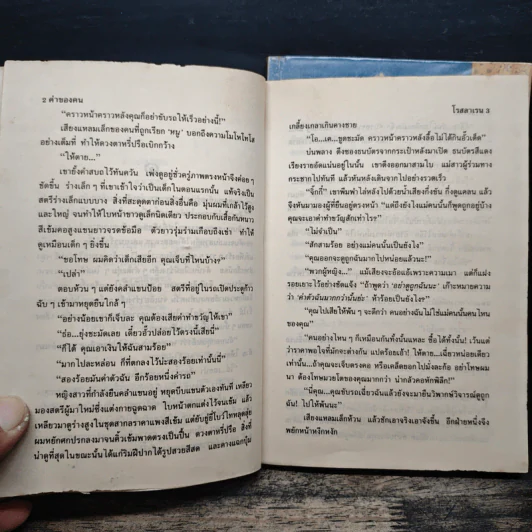 2 ค่าของคน
"คราวหน้าคราวหลังคุณก็อย่าขับรถให้เร็วอย่างนี้!"
เสียงแหลมเล็กของคนที่ถูกเรียก 'หนู' บอกถึงความโมโหโทโส
อย่างเต็มที่ ทำให้ดวงตาที่ปรือเบิกกว้าง
"ให้ตาย..."
เขายั้งคำสบถไว้ทันควัน เพ่งดูอยู่ชั่วครู่ภาพตรงหน้าจึงค่อย ๆ
ชัดขึ้น ร่างเล็ก ๆ ที่เขาเข้าใจว่าเป็นเด็กในตอนแรกนั้น แท้จริงเป็น
สตรีร่างเล็กแบบบาง สิ่งที่สะดุดตาก่อนสิ่งอื่นคือ มุ่นผมที่เกล้าไว้สูง
และใหญ่ จนทำให้ใบหน้าขาวดูเล็กนิดเดียว ประกอบกับเสื้อกันหนาว
สีเข้มคอสูงแขนยาวจรดข้อมือ ตัวยาวรุ่มร่ามเกือบถึงเข่า ทำให้
ดูเหมือนเด็ก ๆ ยิ่งขึ้น
"ขอโทษ ผมคิดว่าเด็กเสียอีก คุณเจ็บที่ไหนบ้าง?"
"เปล่า"
ตอบห้วน ๆ แต่ยังคลำแขนป้อย สตรีที่อยู่ในรถเปิดประตูก้าว
ฉับ ๆ เข้ามาหยุดยืนใกล้ ๆ
"อย่างน้อยเขาก็เจ็บละ คุณต้องเสียค่าทำขวัญให้เขา"
"ฮ่อ...ยุ่งชะมัดเลย เดี๋ยวอั๊วปล่อยไว้ตรงนี้เสียนี่"
"ก็ได้ คุณเอาเงินให้ฉันสามร้อย"
"มากไปละหล่อน ก็ที่ตกลงไว้น่ะสองร้อยเท่านั้นนี่"
"สองร้อยมันค่าตัวฉัน อีกร้อยหนึ่งค่ารถ"
หญิงสาวที่กำลังยืนคลำแขนอยู่ หยุดบีบแขนตัวเองทันที เหลียว
มองสตรีผู้มาใหม่ซึ่งแต่งกายฉูดฉาด ใบหน้าตกแต่งไว้จนเข้ม แล้ว
เหลียวมาดูร่างสูงในชุดสากลราคาแพงสีเข้ม แต่ยับยู่ยี่โบว์ไทหลุดลุ่ย
ผมหยักหยศปรกลงมาจนคิ้วเข้มพาดตรงเป็นปื้น ดวงตาหรี่ปรือ สิ่งที่
น่าดูที่สุดในขณะนั้น ได้แก่ริมฝีปากได้รูปสวยสีสด และคางแฉกบุ๋ม
โรสลาเรน 3
เกลี้ยงเกลาเกินคางชาย
"โอ...เค...ขูดชะมัด คราวหน้าคราวหลังลื้อไม่ได้กินอั๊วเด็ด"
บ่นพลาง ดึงซองธนบัตรจากกระเป๋าหลังมาเปิด ธนบัตรสีแดง
เรียงรายอัดแน่นอยู่ในนั้น เขาดึงออกมาสามใบ แม่สาวผู้ร่วมทาง
กระชากไปทันที แล้วหันหลังเดินจากไปอย่างรวดเร็ว
"จิ๊กกี๋" เขาพึมพำไล่หลังไปด้วยน้ำเสียงกึ่งขัน กึ่งดูแคลน แล้ว
จึงหันมามองผู้ที่ยืนอยู่ตรงหน้า "แต่ถึงยังไงแม่คนนั้นก็พูดถูกอยู่บ้าง
คุณจะเอาค่าทำขวัญสักเท่าไร?"
"ไม่จำเป็น"
"สักสามร้อย อย่างแม่คนนั้นเป็นยังไง"
"คุณออกจะดูถูกฉันมากไปหน่อยแล้วนะ!"
"พวกผู้หญิง..." แม้เสียงจะอ้อแอ้เพราะความเมา แต่ก็แฝง
รอยเยาะไว้อย่างชัดแจ้ง "ถ้าพูดว่า อย่าดูถูกฉันนะ เก๊าะหมายความ
ว่า ค่าตัวฉันมากกว่านั้นย่ะ ทำร้อยเป็นยังไง?"
"คุณไปเสียให้พ้น ๆ จะดีกว่า คนอย่างฉันไม่ใช่แม่คนนั้นคนไหน
ของคุณ"
"คนอย่างไหน ๆ ก็เหมือนกันทั้งนั้นแหละ ซื้อได้ทั้งนั้น! เว้นแต่
ว่าราคาพอใจที่มักจะต่างกัน แปดร้อยเอ้า! ให้ตาย...เฉี่ยวหน่อยเดียว
เท่านั้น...ถ้าคุณจะเจ็บตรงคอ หรือเคล็ดยอกไปมั่งละก้อ อย่าโทษผม
นา ต้องโทษมวยโตของคุณมากกว่า น่ากลัวคอหักพิลึก!"
"นี่คุณ...คุณขับรถเฉี่ยวฉันแล้วยังจะมายืนวิพากษ์วิจารณ์ดูถูก
ฉัน! ไปให้พ้นนะ"
เสียงแหลมเล็กห้วน แล้วชักเอาจริงเอาจังขึ้น อีกฝ่ายหนึ่งจึง
พยักหน้าหงึกหงัก